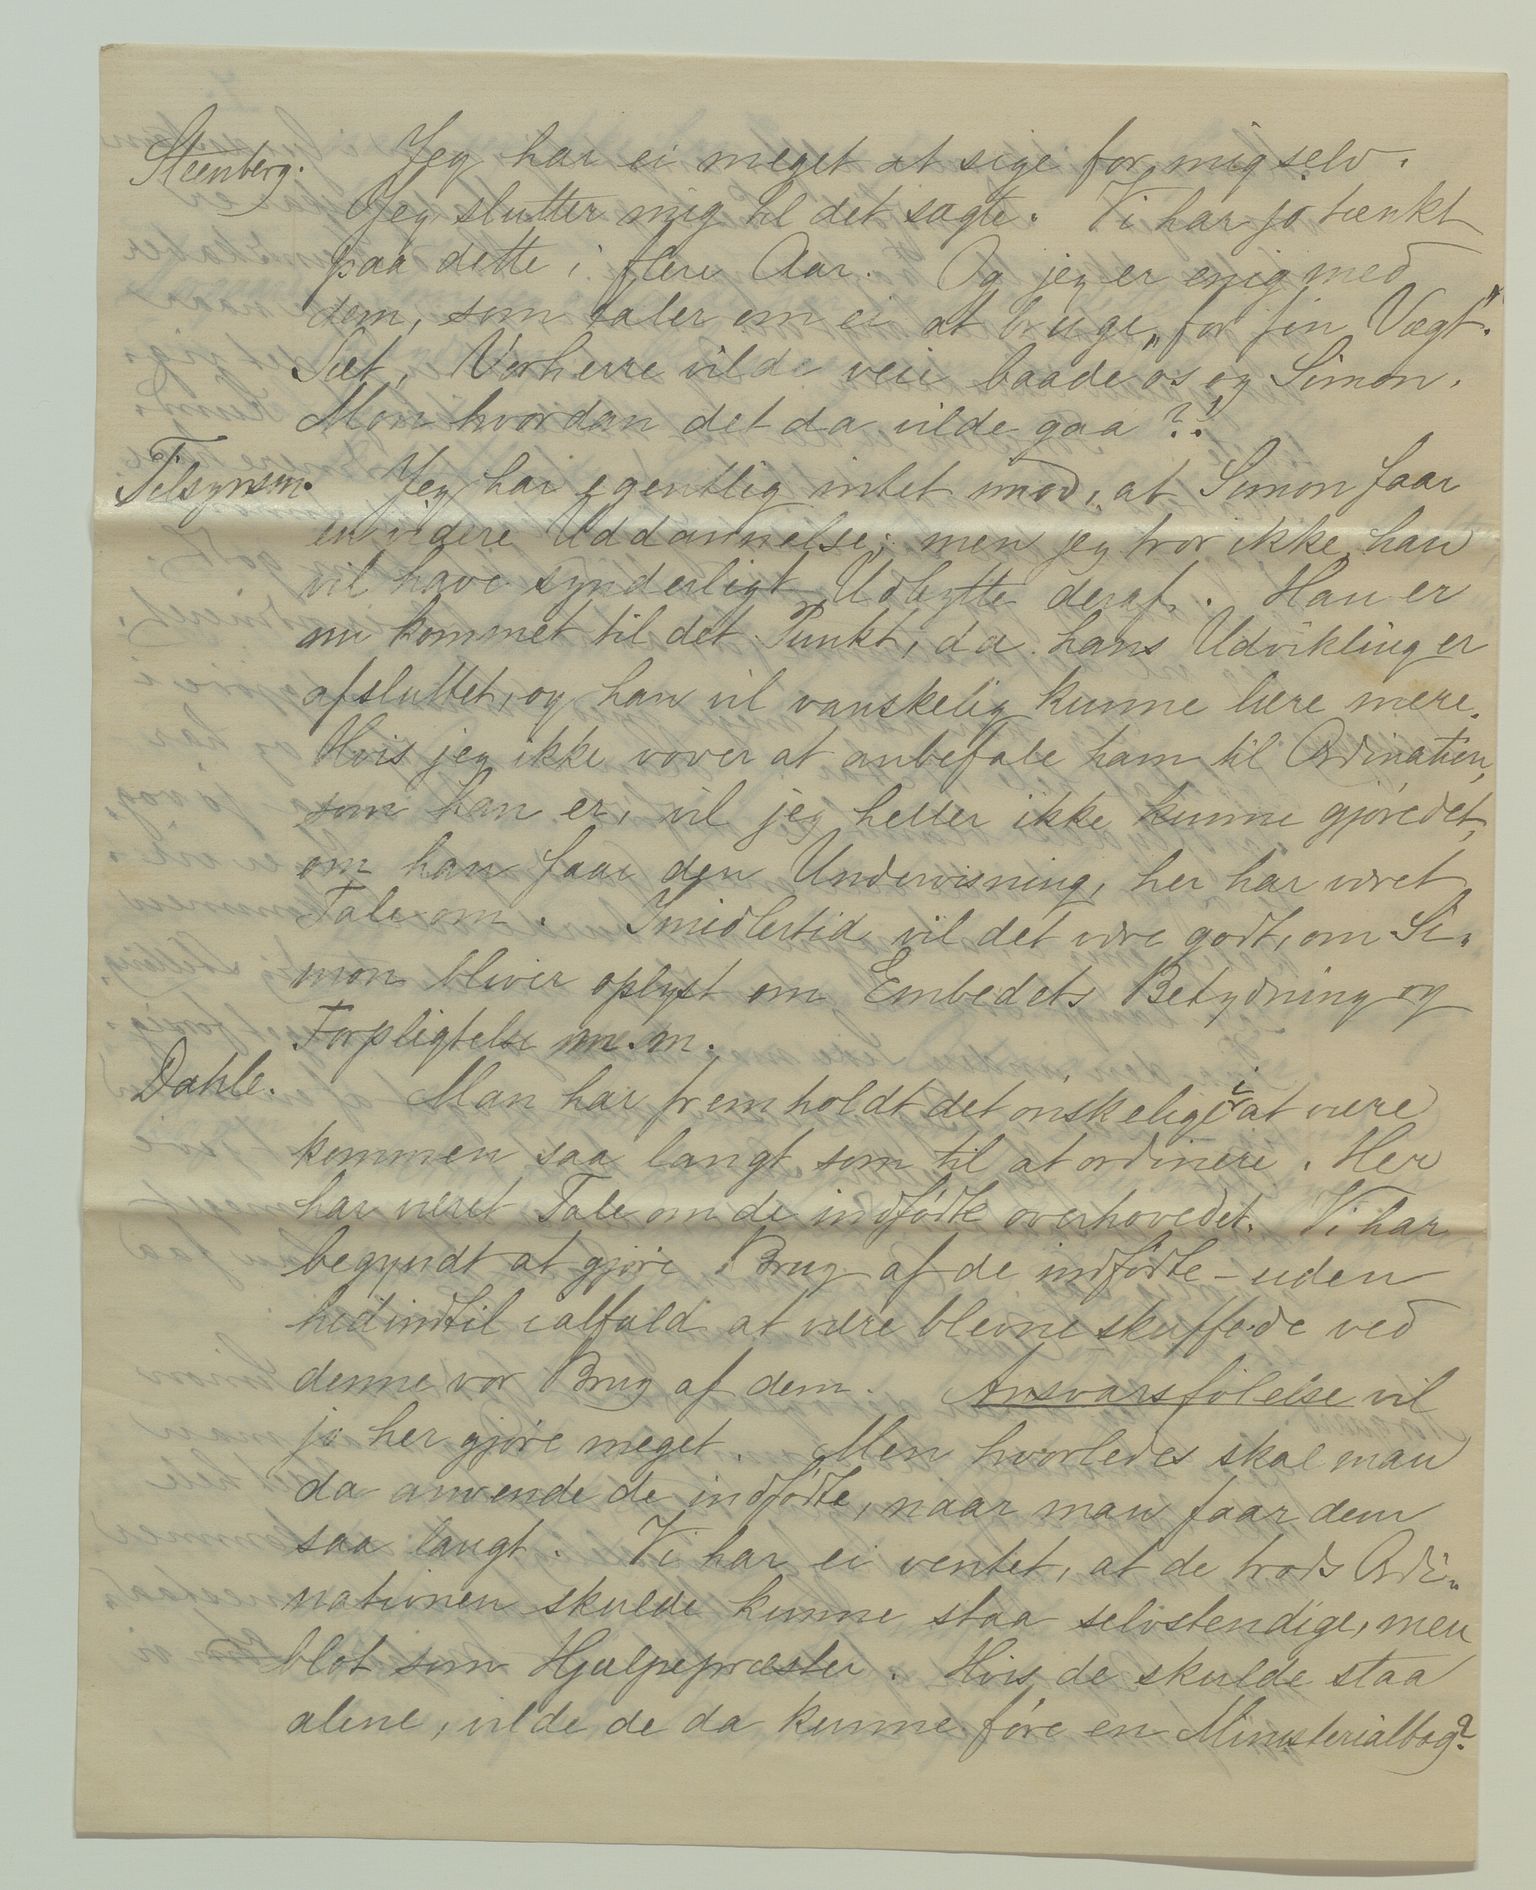 Steenberg. Jeg har ei meget at sige for mig selv.
Jeg slutter mig til det sagte. Vi har jo tænkt
paa dette i flere Aar. Og jeg er enig med
dem, som taler om ei at bruge "for fin Vægt".
Sæt, Vorherre vilde veie baade os og Simon.
Mon hvordan det da vilde gaa?!
Tilsynsm. Jeg har egentlig intet imod, at Simon faar
en videre Uddannelse; men jeg tror ikke, han
vil have synderligt Udbytte deraf. Han er
nu kommet til det Punkt, da hans Udvikling er
afsluttet, og han vil vanskelig kunne lære mere.
Hvis jeg ikke vover at anbefale ham til Ordination,
som han er, vil jeg heller ikke kunne gjøre det,
om han faar den Undervisning, her har været
Tale om. Imidlertid vil det være godt, om Si-
mon bliver oplyst om Embedets Betydning og
Forpligtelse m.m.
Dahle. Man har fremholdt det ønskelige i at være
kommen saa langt som til at ordinere. Her
har været Tale om de indfødte overhovedet. Vi har
begyndt at gjøre Brug af de indfødte – uden
hidindtil ialfald at være blevne skuffede ved
denne vor Brug af dem. Ansvarsfølelse vil
jo her gjøre meget. Men hvorledes skal man
da anvende de indfødte, naar man faar dem
saa langt. Vi har ei ventet, at de trods Ordi-
nationen skulde kunne staa selvstendige, men
blot som Hjælpepræster. Hvis de skulde staa
alene, vilde de da kunne føre en Ministerialbog?